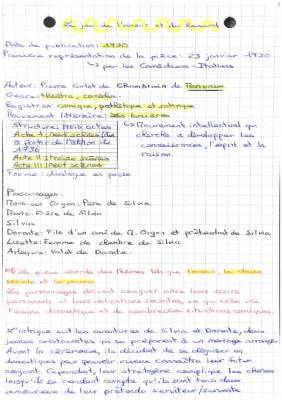 Le jeu de l'amour et du hasard
Date de publication: 1730
Première représentation de la pièce: 23 janvier 1730
↳ par les Comédiens-Italiens
Auteur: Pierre Carlet de Chamblain de Marivaux
Genre: théâtre, comédie
Registres: comique, pathétique et
Mouvement littéraire: Les lumières
Structure: trois actes
↳ Mouvement intellectuel qui
cherche à développer les
connaissances, l'esprit et la
raison.
Acte I: neuf scènes (dix
à partir de l'édition de
1736
Acte II: treize scènes
Acte III: neuf scènes
Forme: dialogue en prose
Personnages:
Monsieur Orgon: Père de Silvia
Mario: Frère de Silvia
Silvia
Dorante: Fils d'un ami de M. Orgon et prétendant de Silvia
Lisette: Femme de chambre de Silvia
Arlequin: Valet de Dorante.
⇒ La pièce aborde des thèmes tels que l'amour, la classe
sociale et le pouvoir
Les personnages doivent naviguer entre leurs désirs
personnels et leurs obligations sociales, ce qui crée une
tension dramatique et de nombreuses situations comiques.
L'intrigue suit les aventures de Silvia et Dorante, deux
jeunes aristocrates qui se préparent à un mariage arrangé
Avant la cérémonie, ils décident de se déguiser en
domestiques pour pouvoir mieux connaître leur futur
conjoint. Cependant, leur stratagème complique les choses
lorsqu'ils se rendent compte qu'ils sont tous deux
amoureux de leur prétendu serviteur/suivante